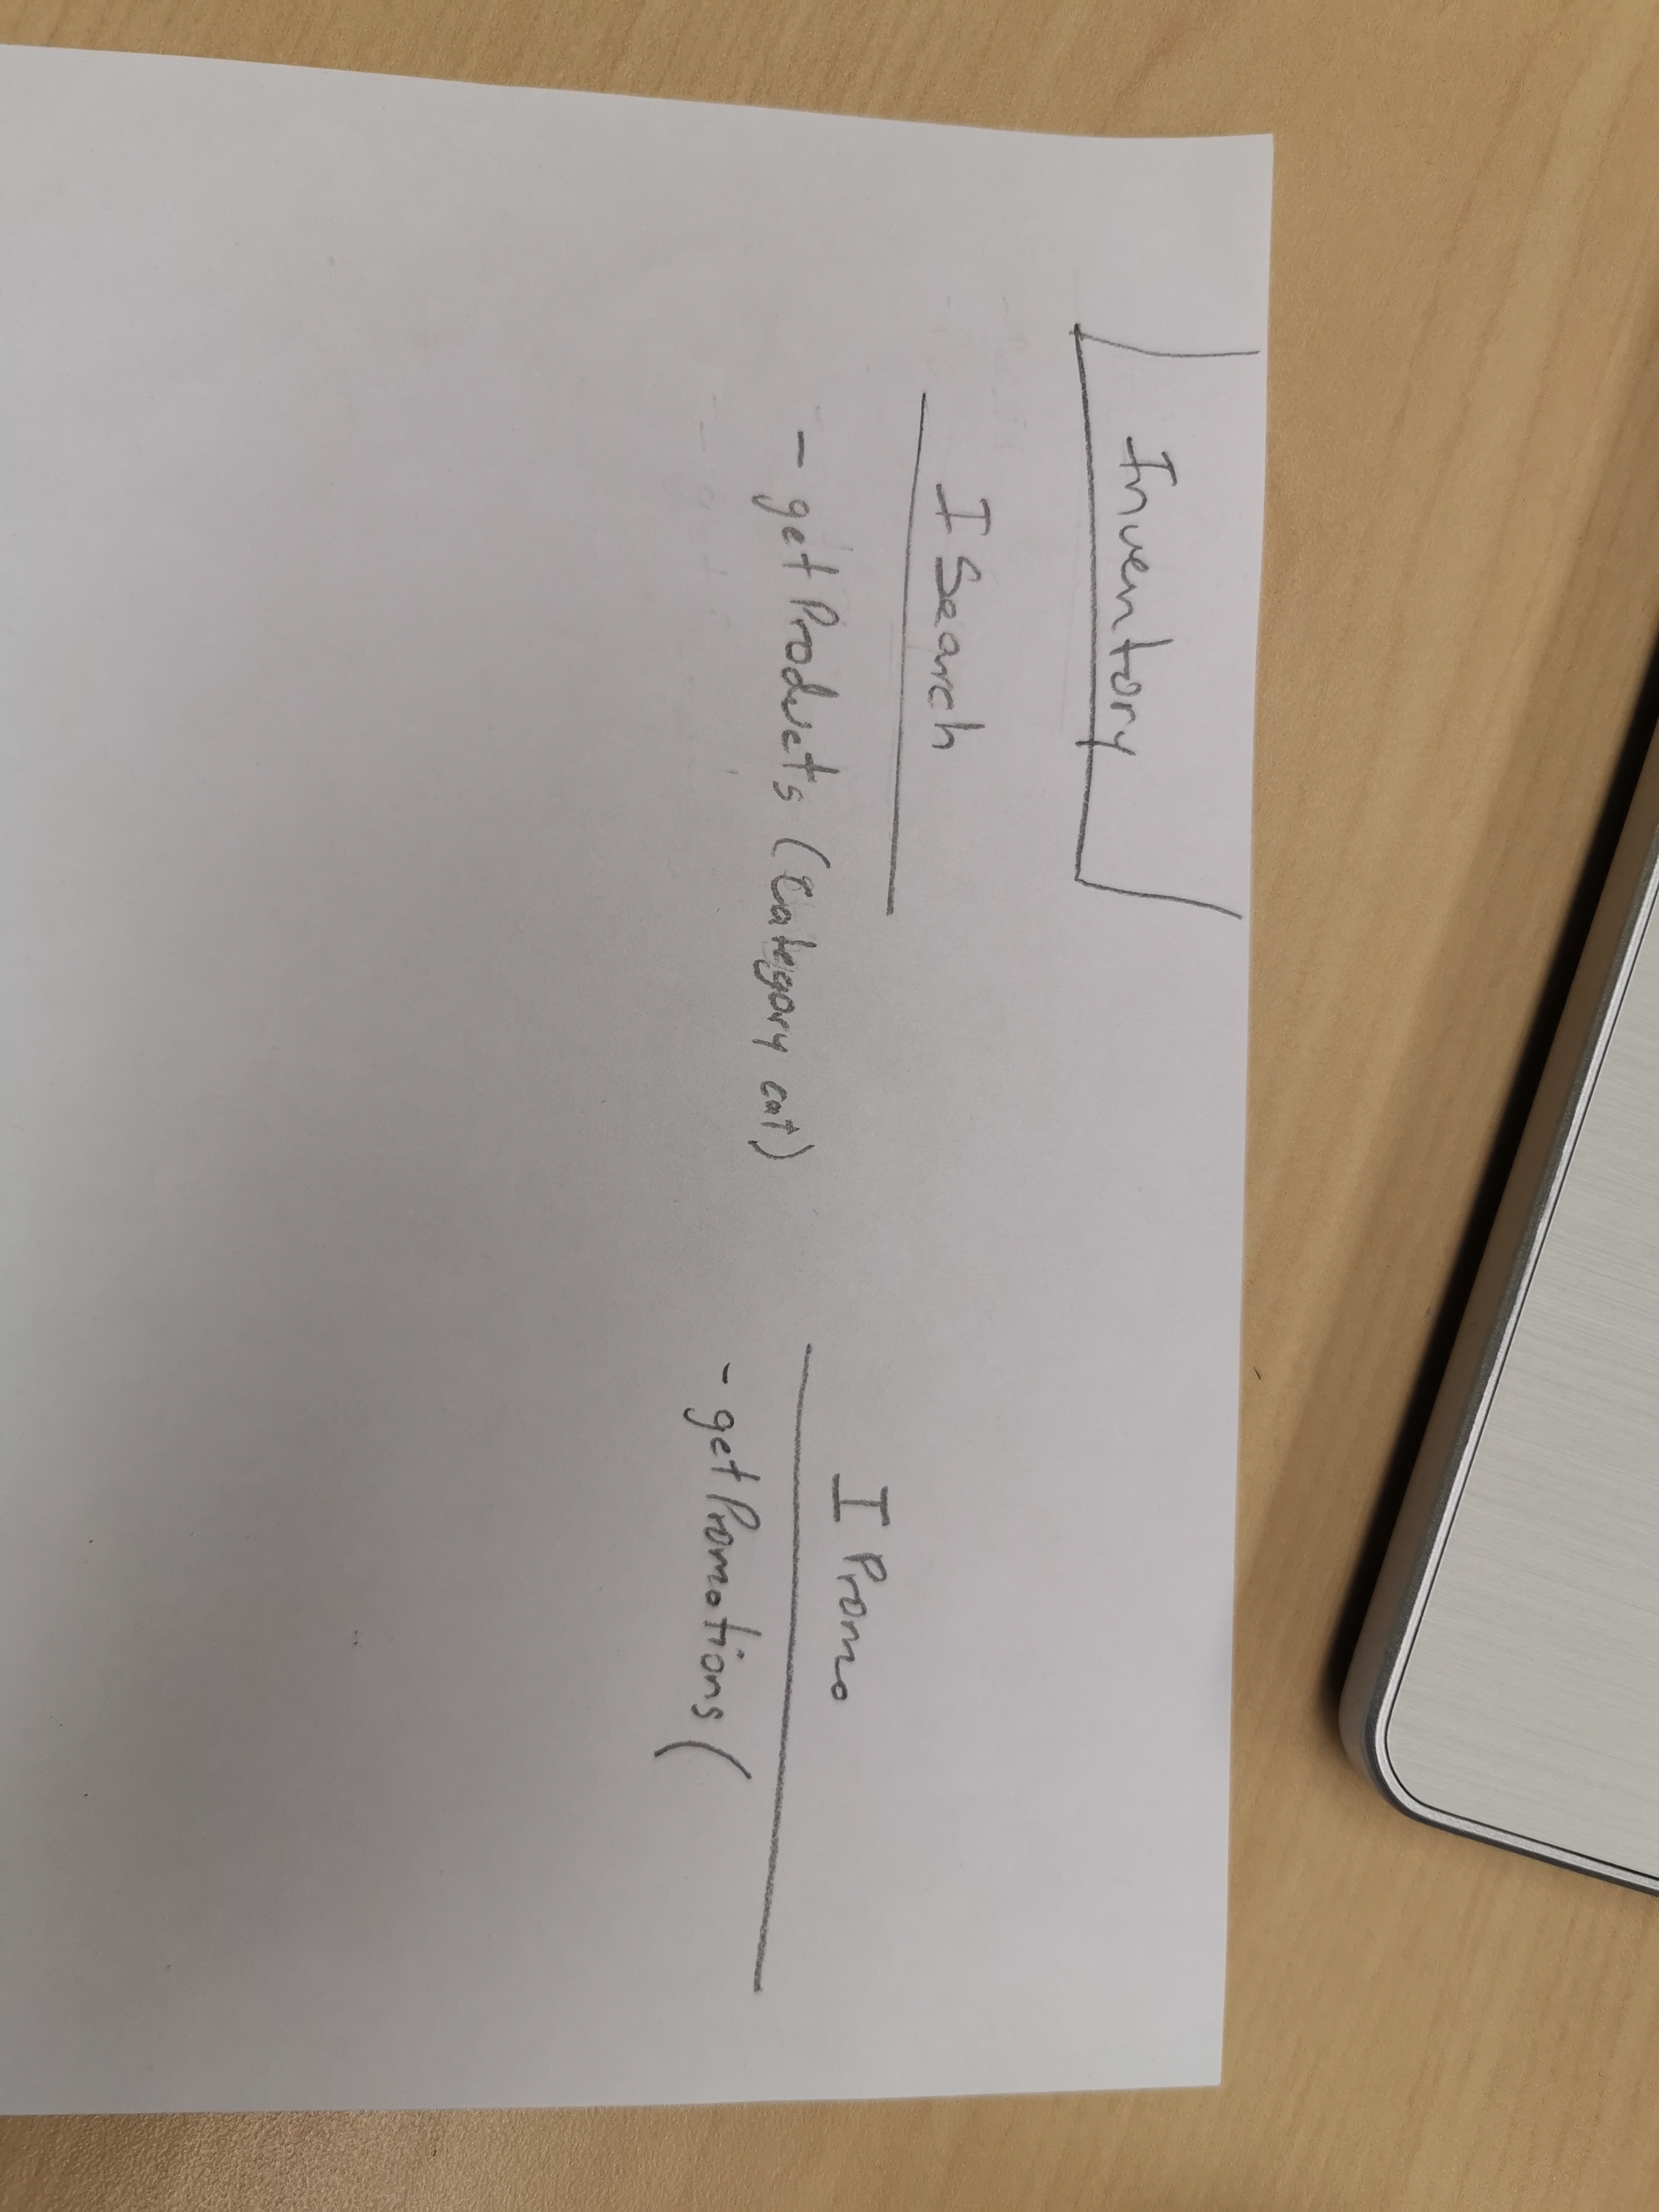 Inventory
I Search
- getProducts (Category cat)
I Promo
- getPromotions (